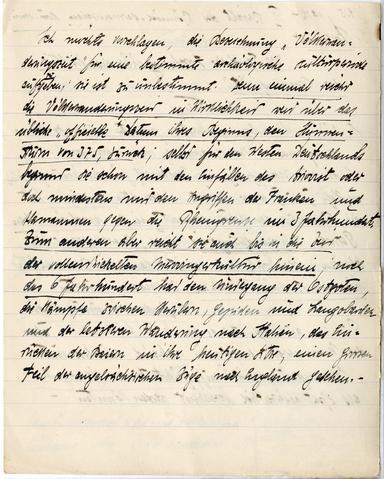 Ich möchte vorschlagen, die Bezeichnung „Völkerwan-
derungszeit für eine bestimmte archäologische Kulturperiode
aufzugeben; sie ist zu unbestimmt. Denn einmal reicht
die Völkerwanderungszeit in Wirklichkeit weit über das
übliche, offizielle Datum ihres Beginns, den Hunnen-
sturm von 375, zurück; selbst für den Westen Deutschlands
beginnt sie schon mit den Einfällen des Ariovist oder
doch mindestens mit den Angriffen der Franken und
Alamannen gegen die Rheingrenze im 3. Jahrhundert.
Zum anderen aber reicht sie auch bis in die Zeit
der vollentwickelten Merowingerkultur hinein; noch
das 6. Jahrhundert hat den Untergang der Ostgoten,
die Kämpfe zwischen Herulern, Gepiden und Langobarden
und der letzteren Wanderung nach Italien, das Ein-
rücken der Baiern in ihre heutigen Sitze, einen grossen
Teil der angelsächsischen Züge nach England gesehen.-